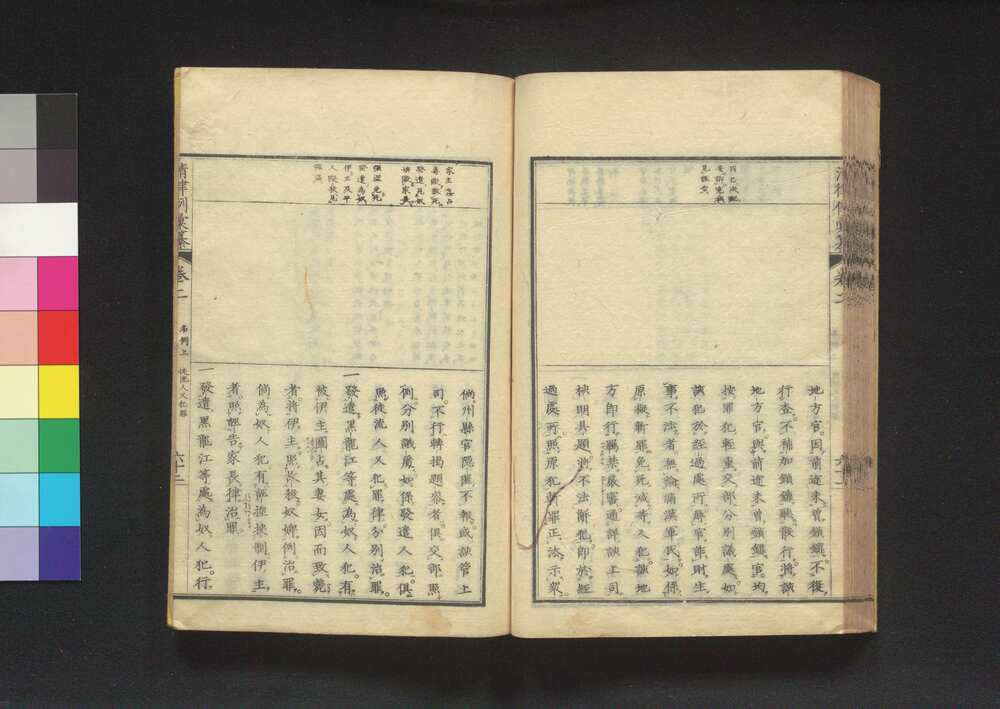 地方官因前途未曾鎖鐵不復
行查不補加鎖鐵聽散行將該
地方官與前途未曾鎖鐵官均
按罪犯輕重交部分別議處如
該犯於經過處所辱官詐財生
事不法者無論滿漢軍民如係
原擬斬罪免死減等人犯該地
方卽行羈禁嚴審通詳該上司
秧明具題將不法解犯卽於經
過處所照原犯斬罪正法示衆
倘州縣官隱匿不報或該管上
司不行轉揭題參者俱交部照
例分別議處如係發遣人犯俱
照徒流人又犯罪律分別治罪
一發遣黑龍江等處為奴人犯有
被伊主圖占其妻女因而致斃
者將伊主照故殺奴婢例治罪
倘為奴人犯有誣捏挾制伊主
者照誣告家長律治罪
一發遣黑龍江等處為奴人犯行
清律例彙纂
卷二
名例上
徒流人又犯罪
六十二